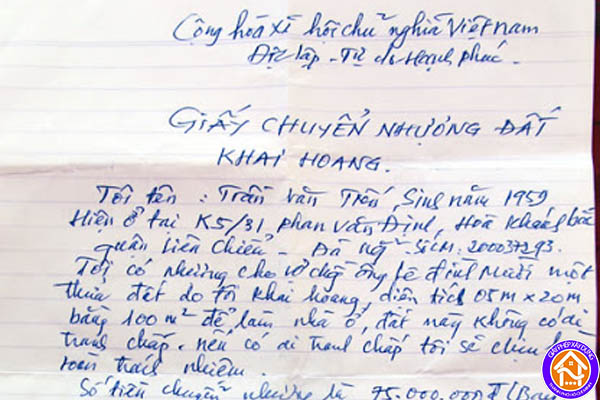 Cộng hoà xã hội chủ nghĩa Việt nam
Độc lập - Tự do Hạnh phúc -
GIẤY CHUYỂN NHƯỢNG ĐẤT
KHAI HOANG.
Tôi tên : Trần văn Tiến, Sinh năm 1959
Hiện ở tại K5/31, phan văn Định, Hoà Khánh bắc
quận Liên Chiểu - Đà nẵng SICM: 200037293.
Tôi có nhường cho vợ chồng ông Lê đình Mười một
thửa đất do tôi khai hoang, diện tích 05m x 20m
bằng 100m² để làm nhà ở, đất này không có di
tranh chấp. nếu có di tranh chấp tôi sẽ chịu
toàn trách nhiệm.
Số tiền chuyển nhường là 75.000.000đ (Bảy
GIẤY PHÉP XÂY DỰNG